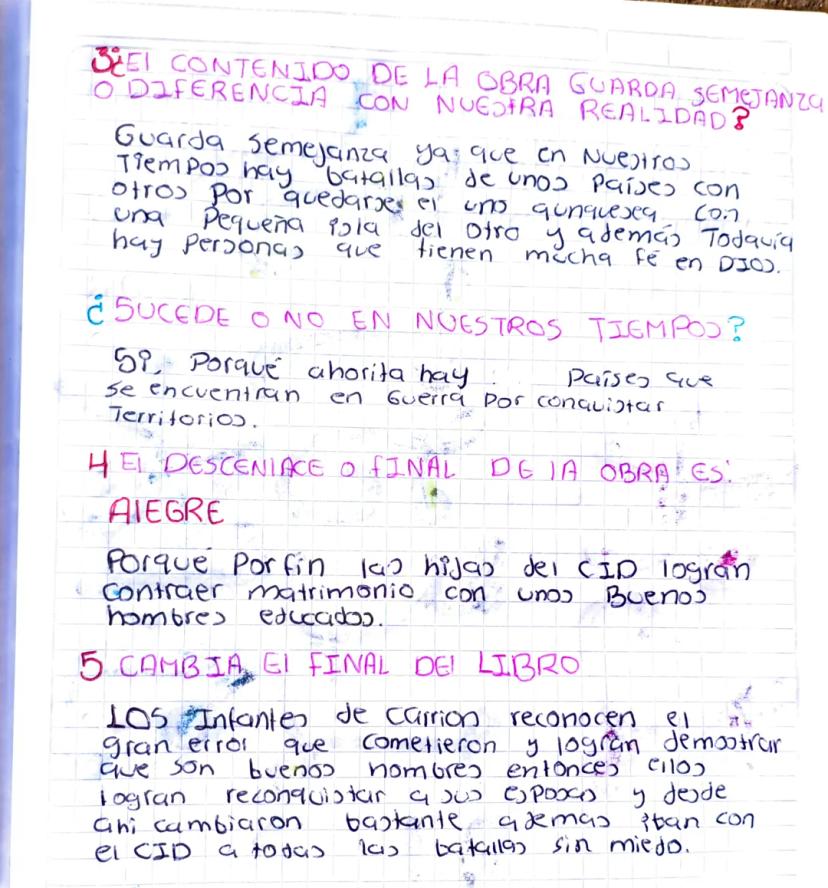 3¿El CONTENIDO DE LA OBRA GUARDA SEMEJANZA
O DIFERENCIA CON NUESTRA REALIDAD?
Guarda semejanza ya que en Nuestros
Tiempos hay batallas de unos países con
otros por quedarse el uno aunquesea con
una Pequeña isla del otro y además Todavía
hay personas que tienen mucha fé en DIOS.
¿SUCEDE O NO EN NUESTROS TIEMPOS?
Si, Porqué ahorita hay países que
se encuentran en Guerra por conquistar
Territorios.
4 El DESCENlACE O fINAL DE lA OBRA ES:
AlEGRE
Porqué Por fin las hijas del CID logran
contraer matrimonio con unos Buenos
hombres educados.
5 CAMBIA El FINAL DEl LIBRO
LOS Infantes de carrion reconocen el
gran error que cometieron y logran demostrar
que son buenos hombres entonces ellos
logran reconquistar a sus esposas y desde
ahi cambiaron bastante ademas iban con
el CID a todas las batallas sin miedo.